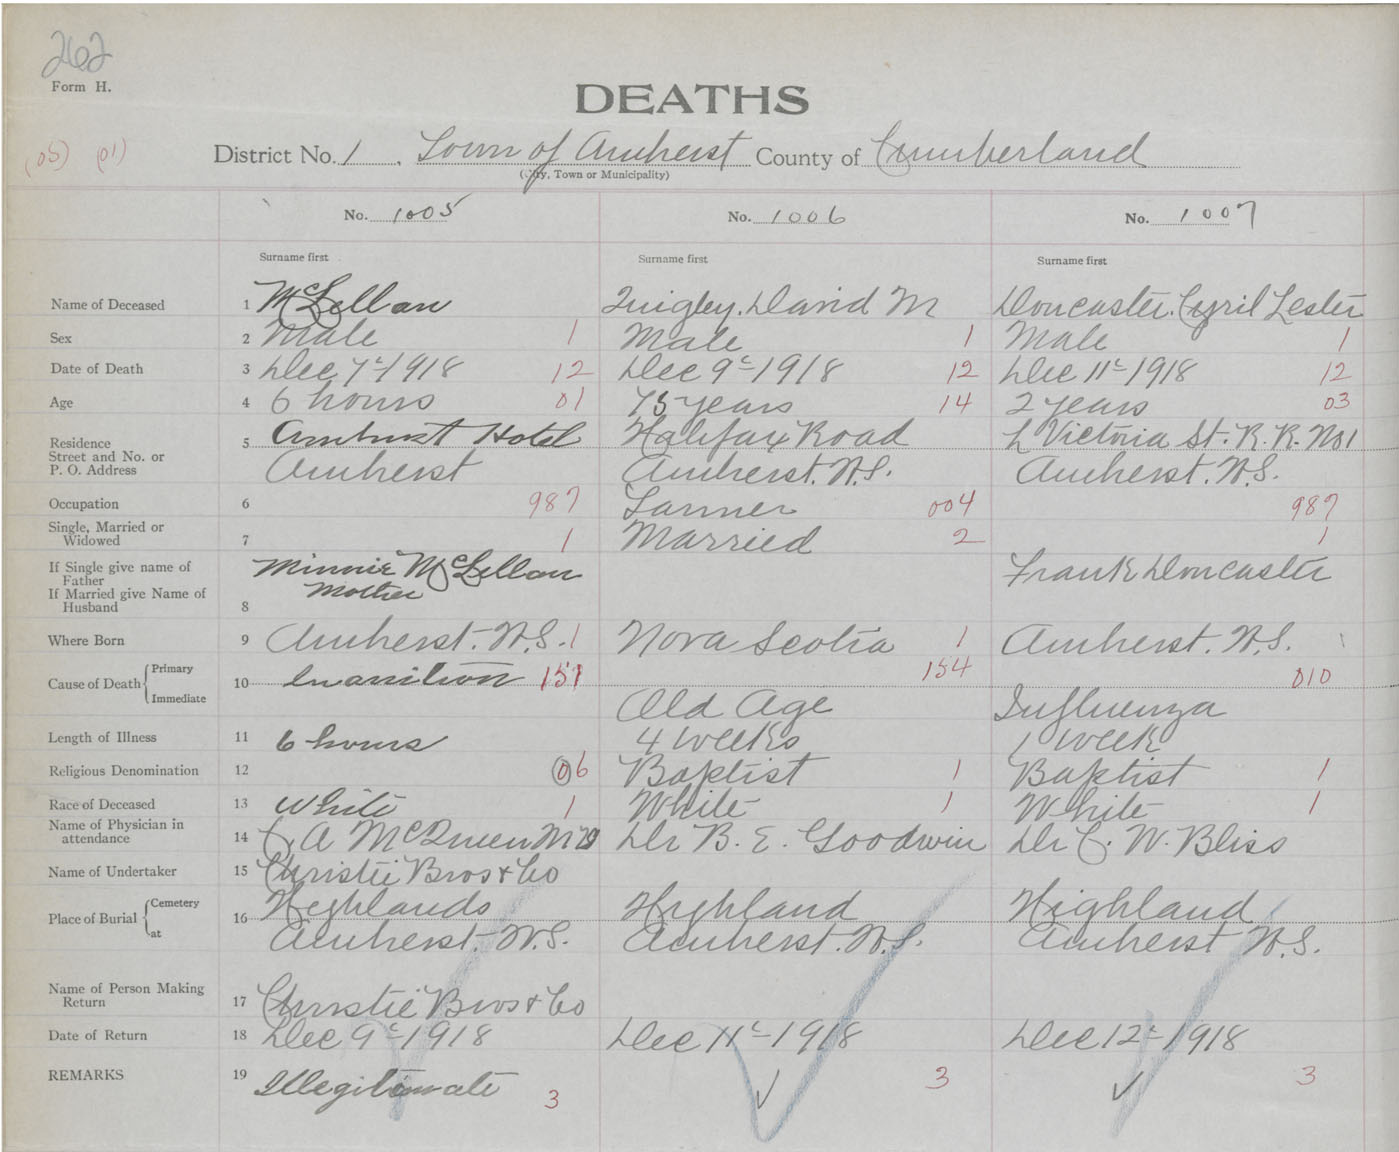 262
Form H.
DEATHS
(05) (01)
District No. 1, Town of Amherst County of Cumberland
(City, Town or Municipality)
No. 1005 No. 1006 No. 1007
Surname first Surname first Surname first
Name of Deceased 1 McLellan Quigley. David M Doncaster. Cyril Lester
Sex 2 Male 1 Male 1 Male 1
Date of Death 3 Dec 7th 1918 12 Dec 9th 1918 12 Dec 11th 1918 12
Age 4 6 hours 01 75 years 14 2 years 03
Residence
Street and No. or
P. O. Address
5 Amherst Hotel Halifax Road L Victoria St. R. R. No 1
Amherst Amherst. N.S. Amherst. N.S.
Occupation 6 987 Farmer 004 987
Single, Married or
Widowed 7 1 Married 2 1
If Single give name of
Father
If Married give Name of
Husband 8
Minnie McLellan Frank Doncaster
Mother
Where Born 9 Amherst. N.S. 1 Nova Scotia 1 Amherst. N.S. 1
Cause of Death Primary 10 Inanition 151 154 010
Immediate Old Age Influenza
Length of Illness 11 6 hours 4 Weeks 1 Week
Religious Denomination 12 06 Baptist 1 Baptist 1
Race of Deceased 13 White 1 White 1 White 1
Name of Physician in
attendance 14 C. A McQueen MD Dr B. E. Goodwin Dr C. W. Bliss
Name of Undertaker 15 Christie Bros & Co
Place of Burial Cemetery 16 Highlands Highland Highland
at Amherst. N.S. Amherst. N.S. Amherst N.S.
Name of Person Making
Return 17 Christie Bros & Co
Date of Return 18 Dec 9th 1918 Dec 11th 1918 Dec 12th 1918
REMARKS 19 Illegitimate 3 ✓ 3 ✓ 3